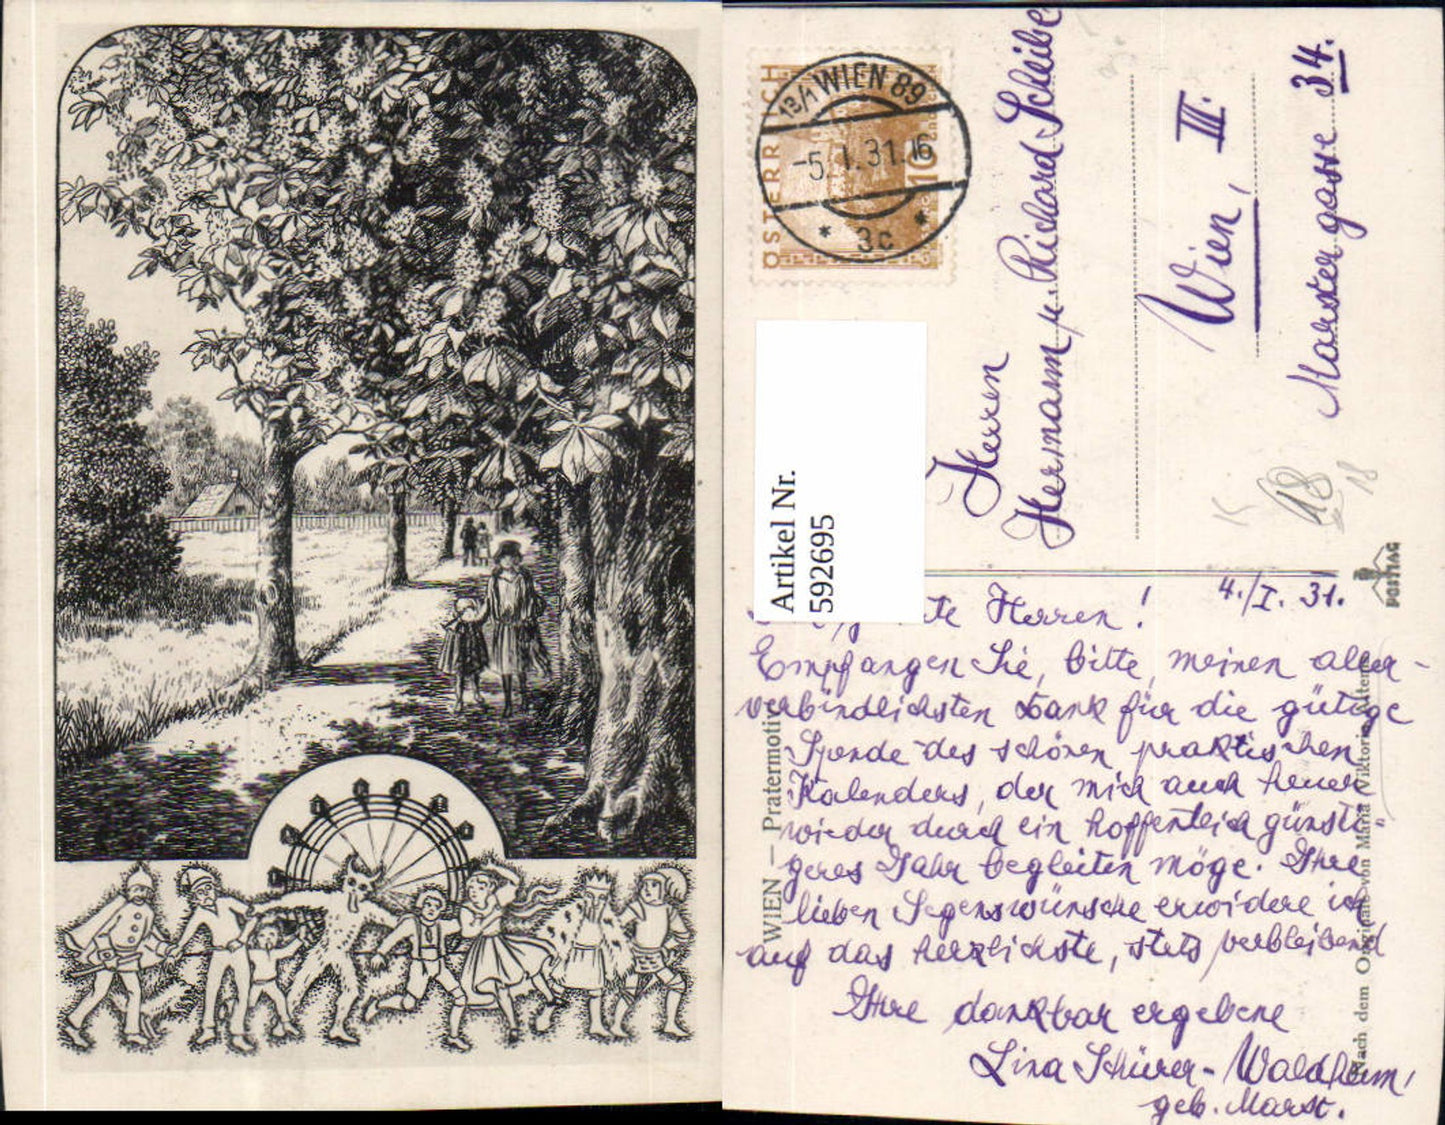 13/1 WIEN 89
-5.I.31.16
* 3c *
ÖSTERREICH
10
Artikel Nr.
592695
Herrn
Hermann u. Richard Scheibe
Wien, III.
Marokkergasse 34.
18
15
18
POSTIAG
4./I. 31.
te Herren!
Empfangen Sie, bitte, meinen aller-
verbindlichsten Dank für die gütige
Spende des schönen praktischen
Kalenders, der mich auch heuer
wieder durch ein hoffentlich günsti-
geres Jahr begleiten möge. Ihre
lieben Segenswünsche erwidere ich
auf das herzlichste, stets verbleibend
Ihre dankbar ergebene
Lina Schürer-Waldheim,
geb. Marst.
WIEN — Pratermotiv
Nach dem Originale von Maria Viktoria Altem